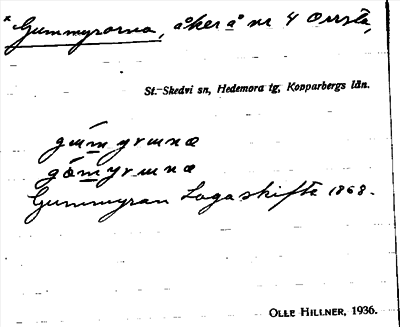 * Gummyrorna, åker å nr 4 Orrsta,
St. Skedvi sn, Hedemora tg, Kopparbergs län.
gummyrunæ
gömyrunæ
Gummyran Lagaskifte 1868.
OLLE HILLNER, 1936.